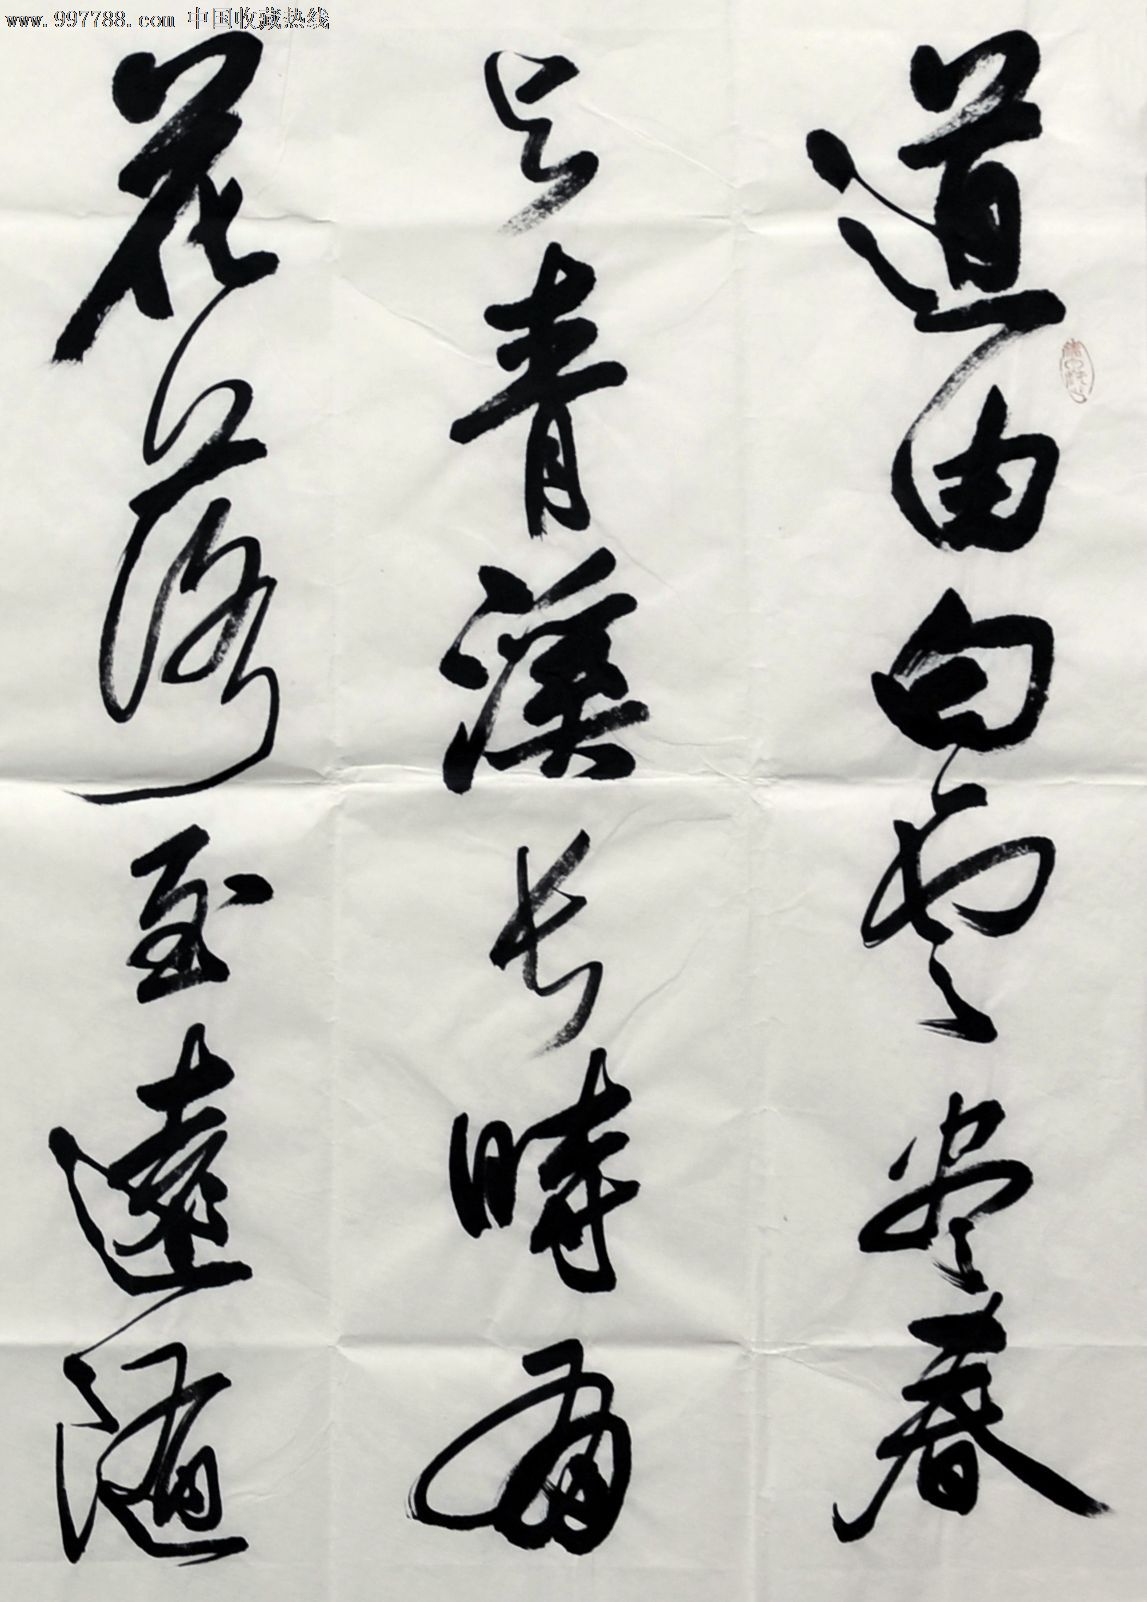 www.997788.com 中国收藏热线
道由白雲尽春
与青溪长時有
花落至遠随